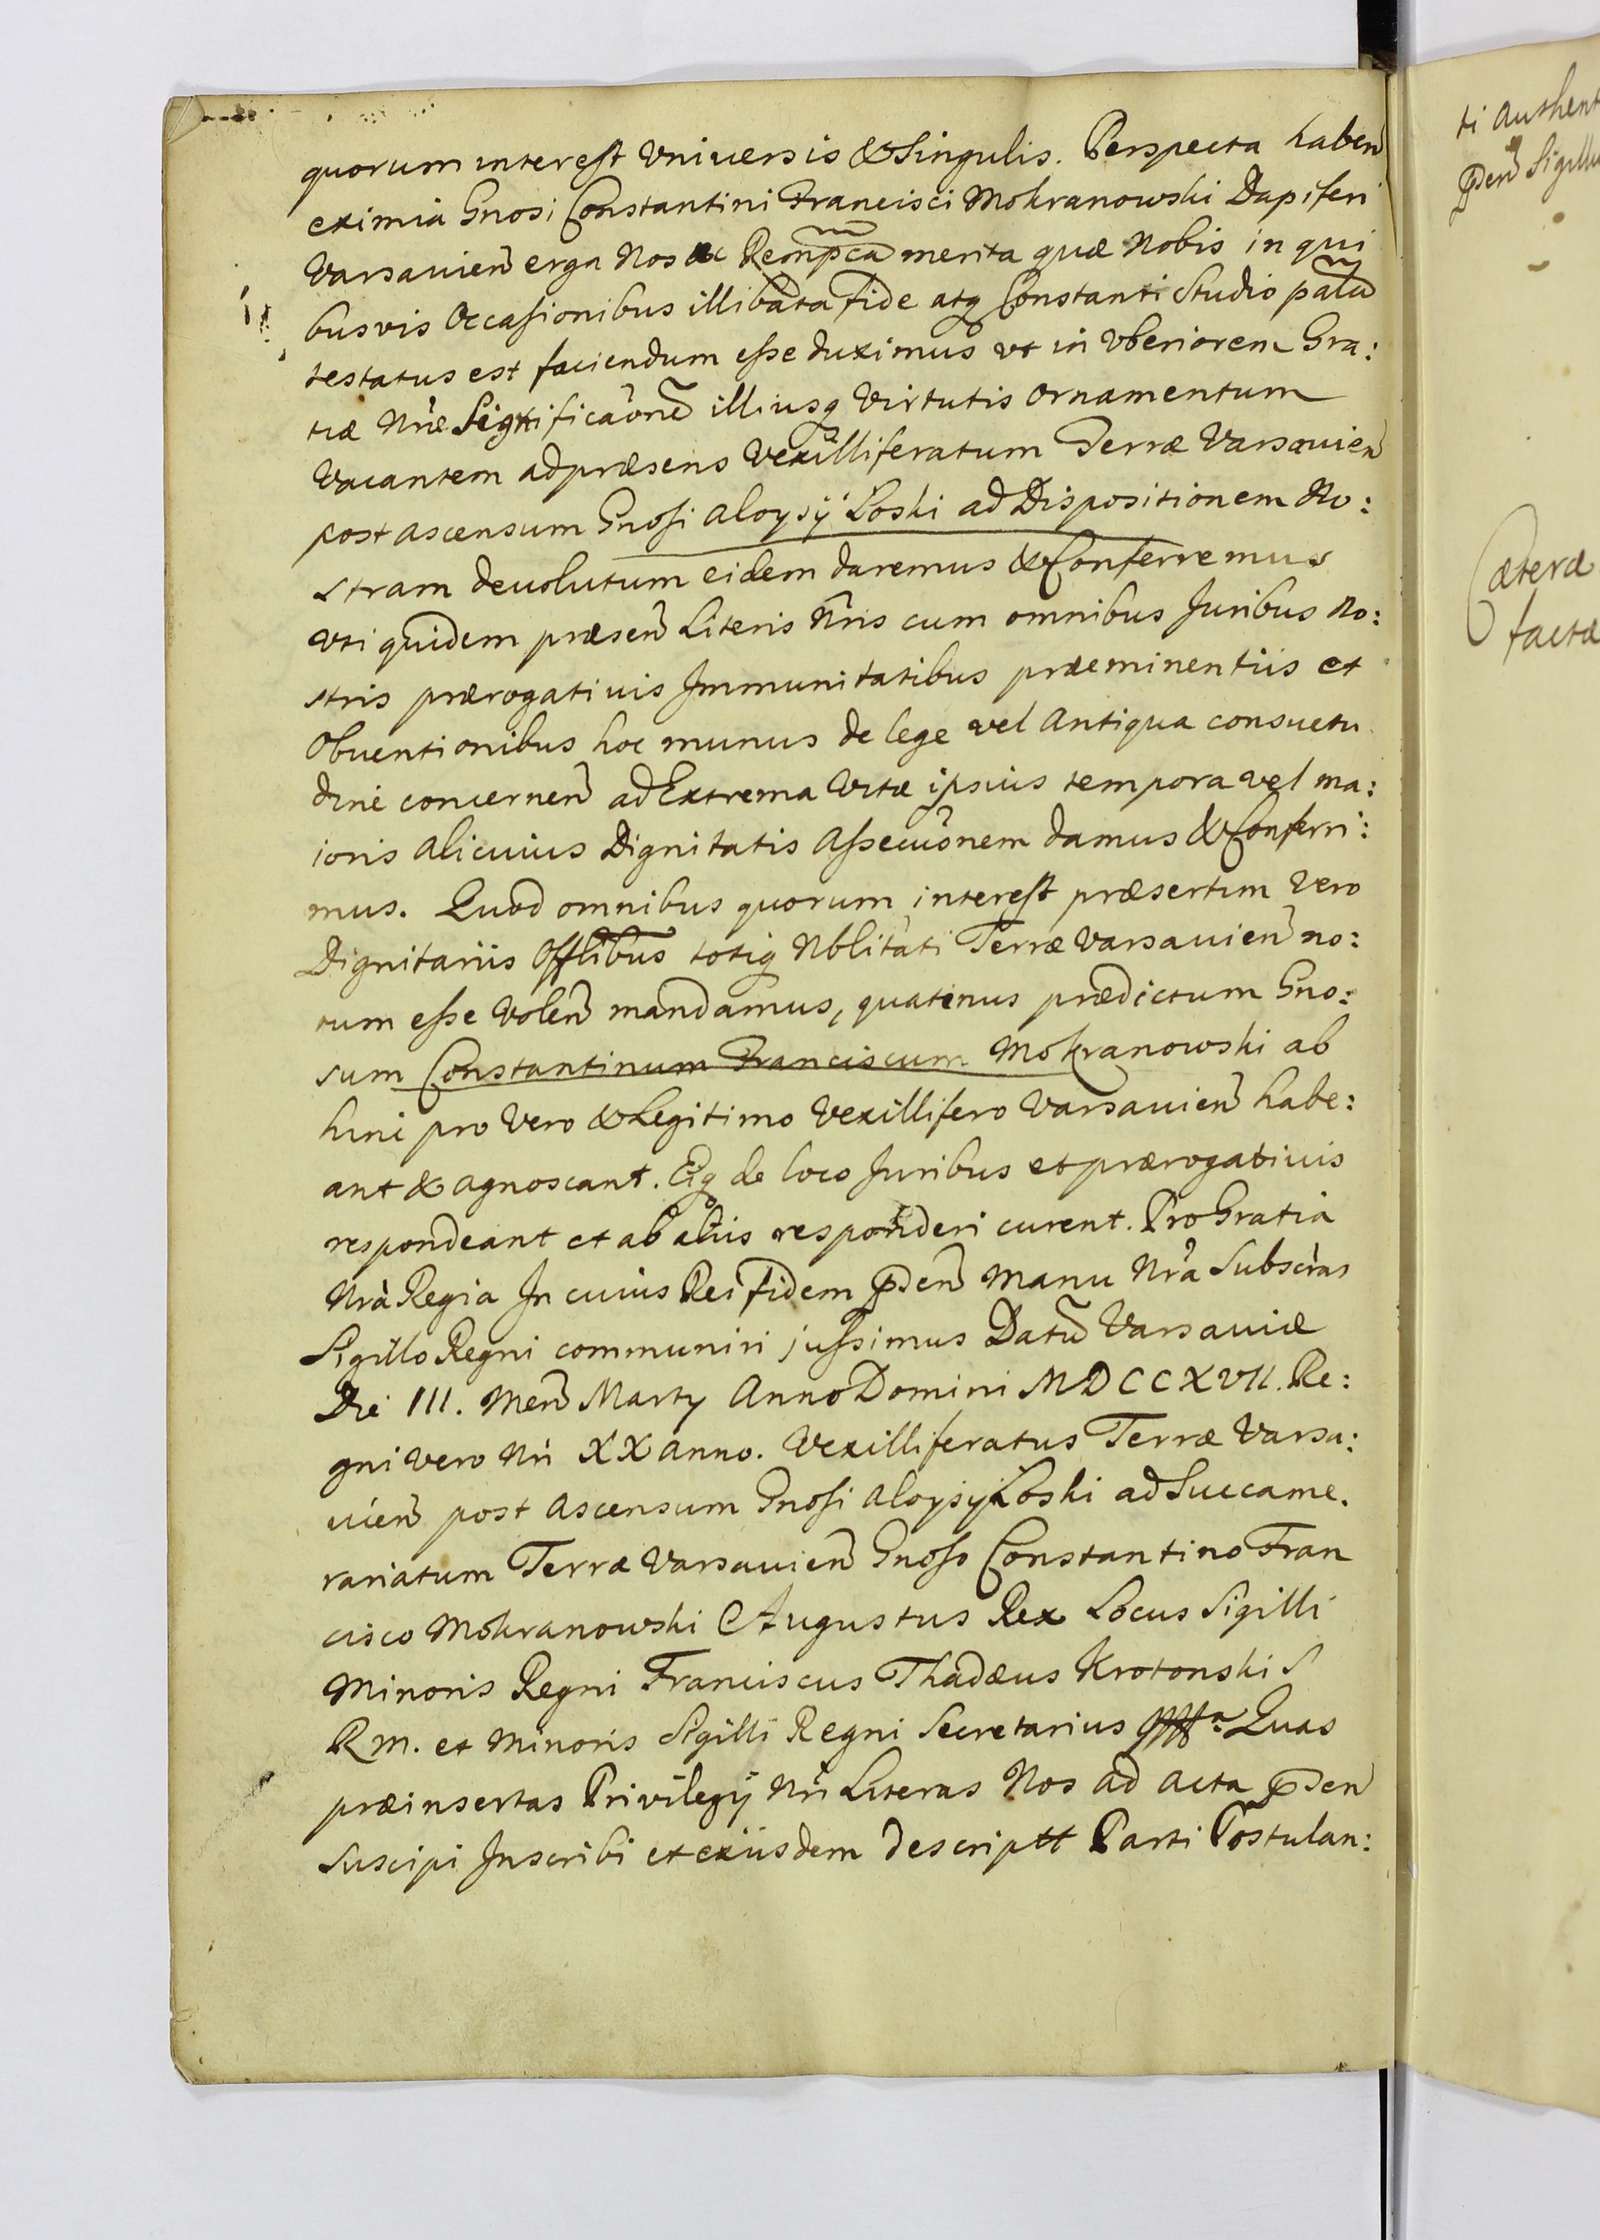 quorum interest Vniversis & Singulis. Perspecta haben
eximia Gnosi Constantini Francisci Mokranowski Dapiferi
Varsavien erga Nos ac Rempcã merita quæ Nobis in qui
busvis Occasionibus illibata fide atq Constanti Studio palã
testatus est faciendum esse duximus vt in Vberiorem Gra:
tiæ Nræ Significaõnẽ illiusq Virtutis ornamentum
Vacantem ad præsens Vexilliferatum Terræ Varsavien
post ascensum Gnosi Aloysÿ Loski ad Dispositionem No:
stram devolutum eidem daremus & Conferremus
Vti quidem præsen Literis Nris cum omnibus Juribus No:
stris prærogativis Immunitatibus præeminentiis et
Obventionibus hoc munus de lege vel antiqua consuetu
dine concernen ad Extrema Vitæ ipsius tempora vel ma:
ioris alicuius Dignitatis Assecuõnem damus & Conferri:
mus. Quod omnibus quorum interest præsertim Vero
Dignitariis Offlibus totiq Nblitati Terræ Varsavien no:
tum esse Volen mandamus, quatenus prædictum Gno:
sum Constantinum Franciscum Mokranowski ab
hinc pro Vero & Legitimo Vexillifero Varsavien habe:
ant & agnoscant. Eiq de loco Juribus et prærogativis
respondeant et ab aliis responderi curent. Pro Gratia
Nrà Regia In cuius Rei fidem pden manu Nrà Subscras
Sigillo Regni communiri jussimus Datũ Varsaviæ
Die III. Men Marty Anno Domini MDCCXVII. Re:
gni Vero Nri XX anno. Vexilliferatus Terræ Varsa:
vien post ascensum Gnosi Aloysy Loski ad Succame.
rariatum Terræ Varsavien Gnoso Constantino Fran
cisco Mokranowski Augustus Rex Locus Sigilli
Minoris Regni Franciscus Thadæus Krotonski S
R M. et Minoris Sigilli Regni Secretarius Quas
præinsertas Privilegÿ Nri Literas Nos ad acta pden
Suscipi Inscribi et exiisdem descriptt Parti Postulan:
ti Authent
pden Sigillu
Cæteræ
factæ